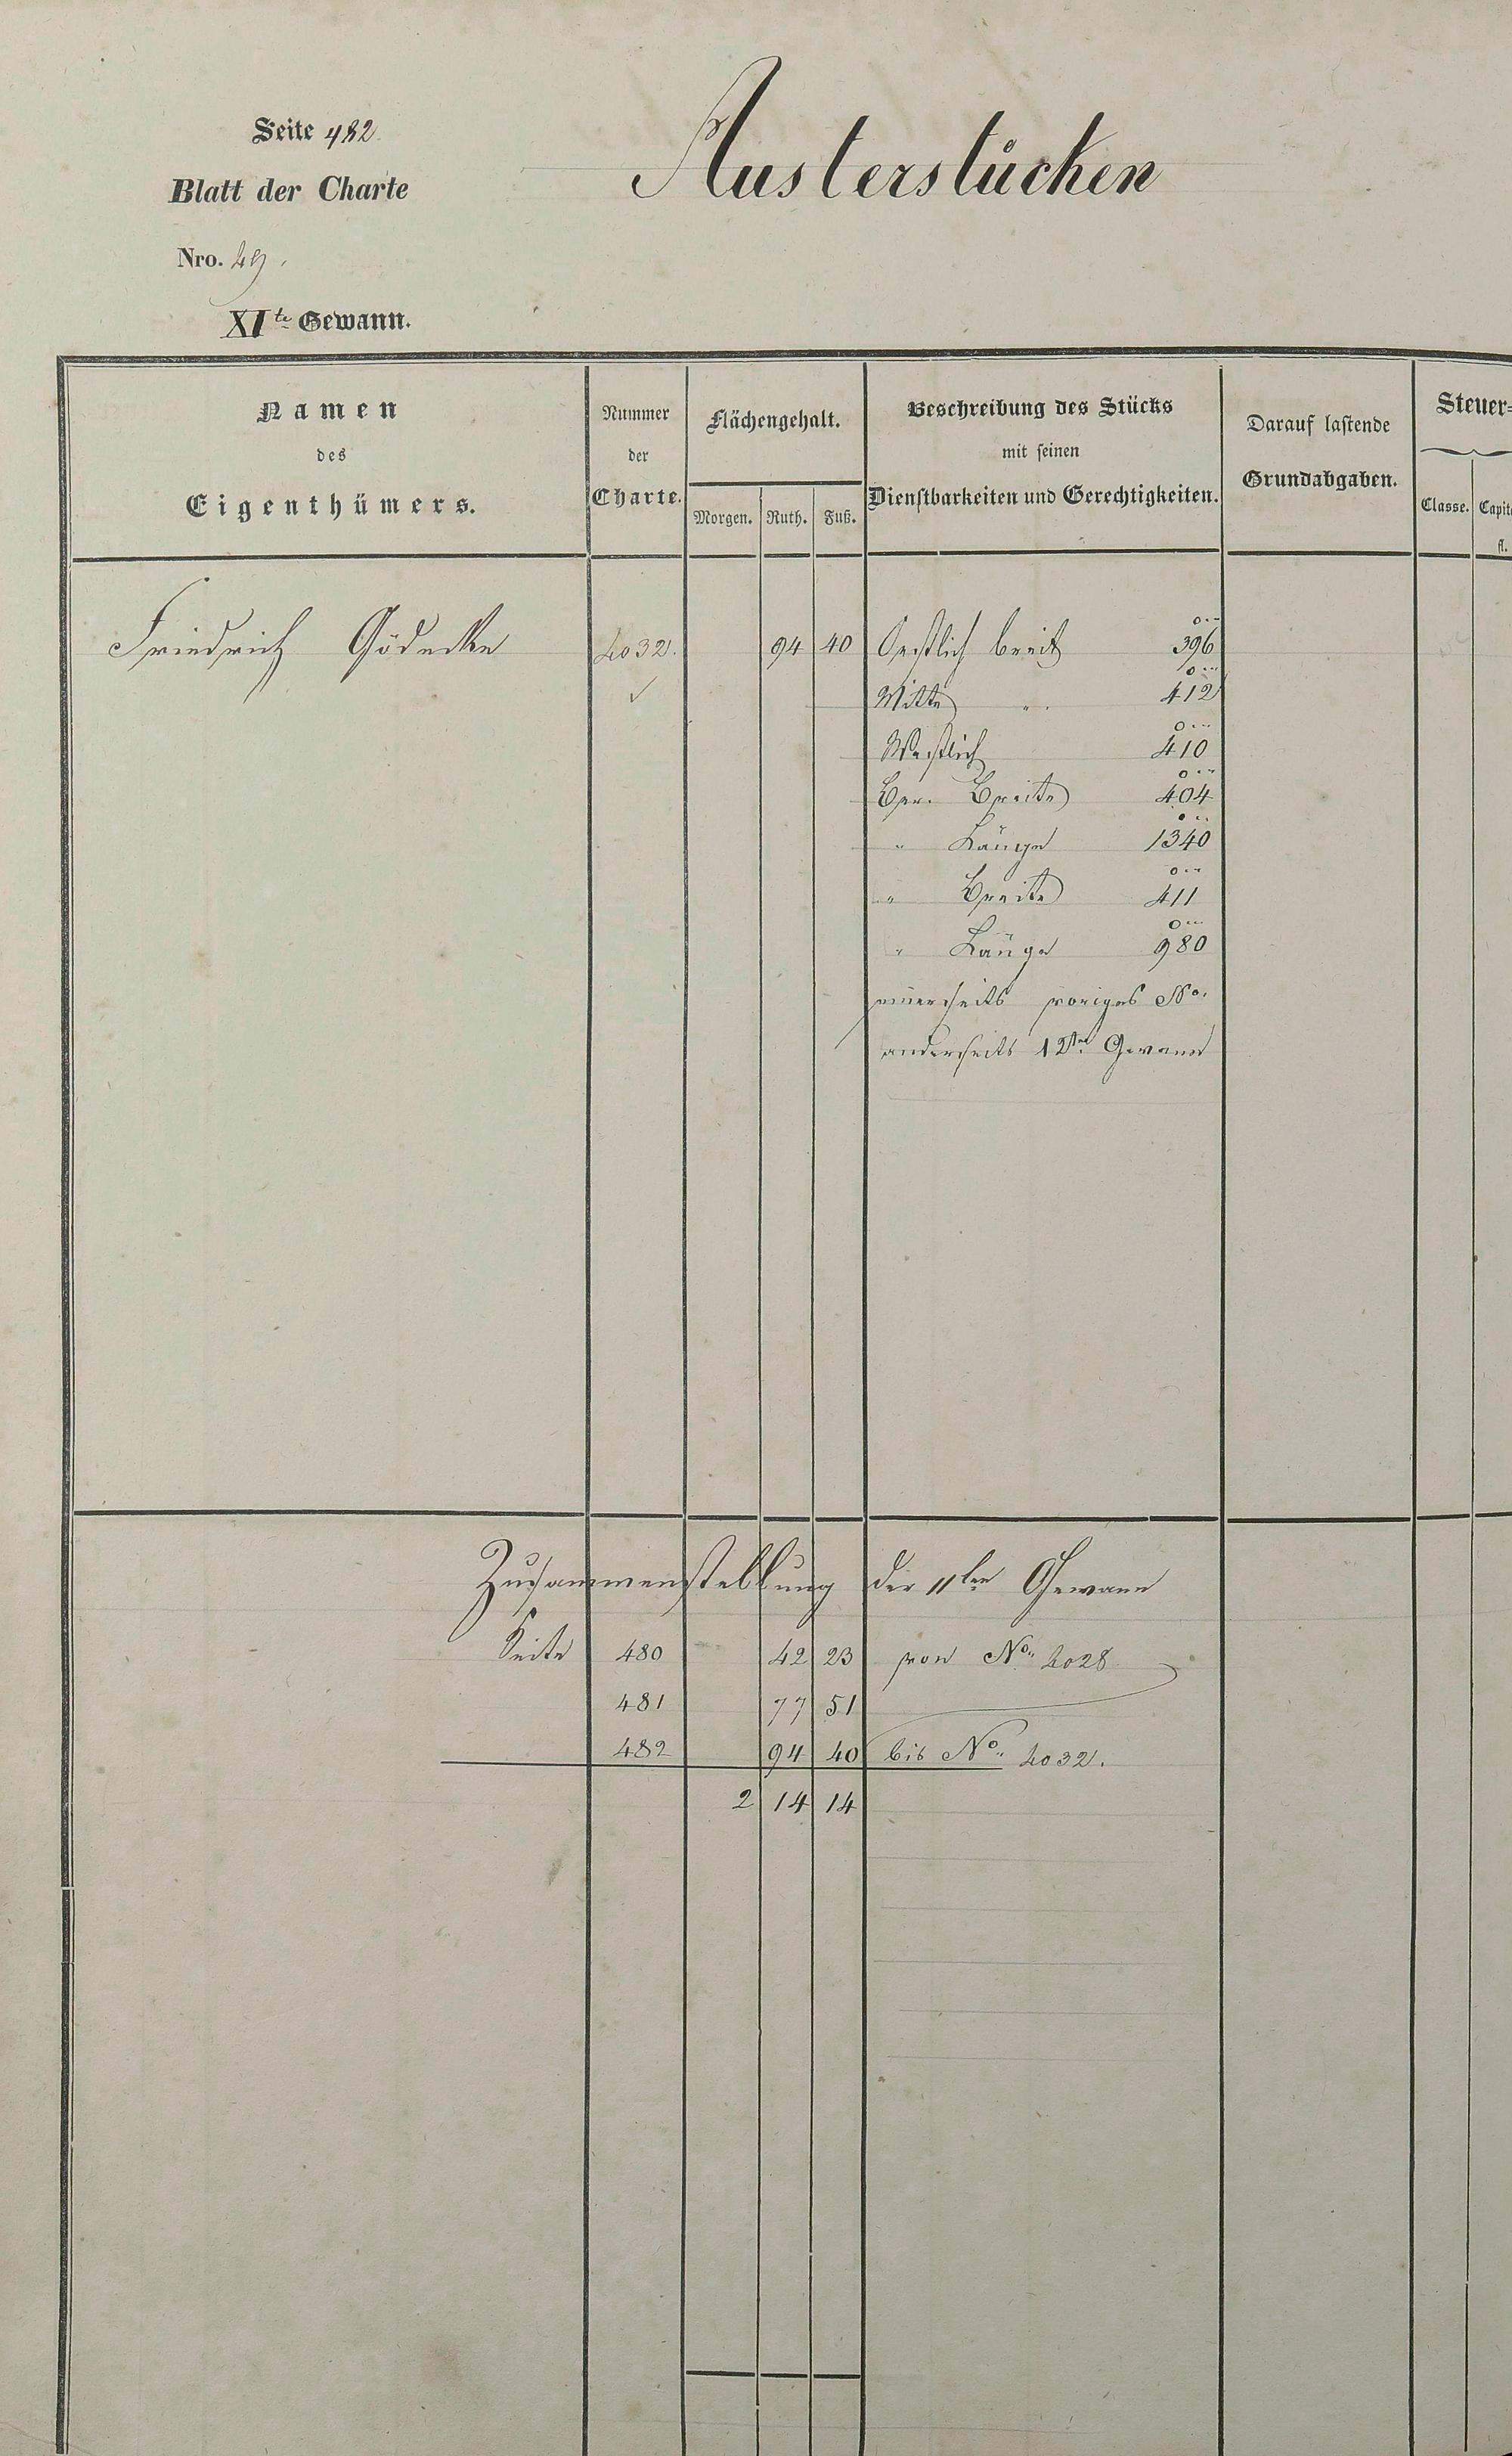 Seite 482
Austerstücken
Blatt der Charte
Nro. 49.
XIte Gewann.
Namen
des
Eigenthümers.
Nummer
der
Charte.
Flächengehalt.
Morgen. Ruth. Fuß.
Beschreibung des Stücks
mit seinen
Dienstbarkeiten und Gerechtigkeiten.
Darauf lastende
Grundabgaben.
Steuer=
Classe.
fl.
Friedrich Gödecke 4032. 94 40 Oestlich breit 396
Mitte " 412
Westlich 410
Ber. Breite 404
" Länge 1340
" Breite 411
" Länge 980
einerseits voriges No.
anderseits 12te Gewann
Zusammenstellung der 11ten Gewann
Seite 480 42 23 von No. 4028
481 77 51
482 94 40 bis No. 4032.
2 14 14